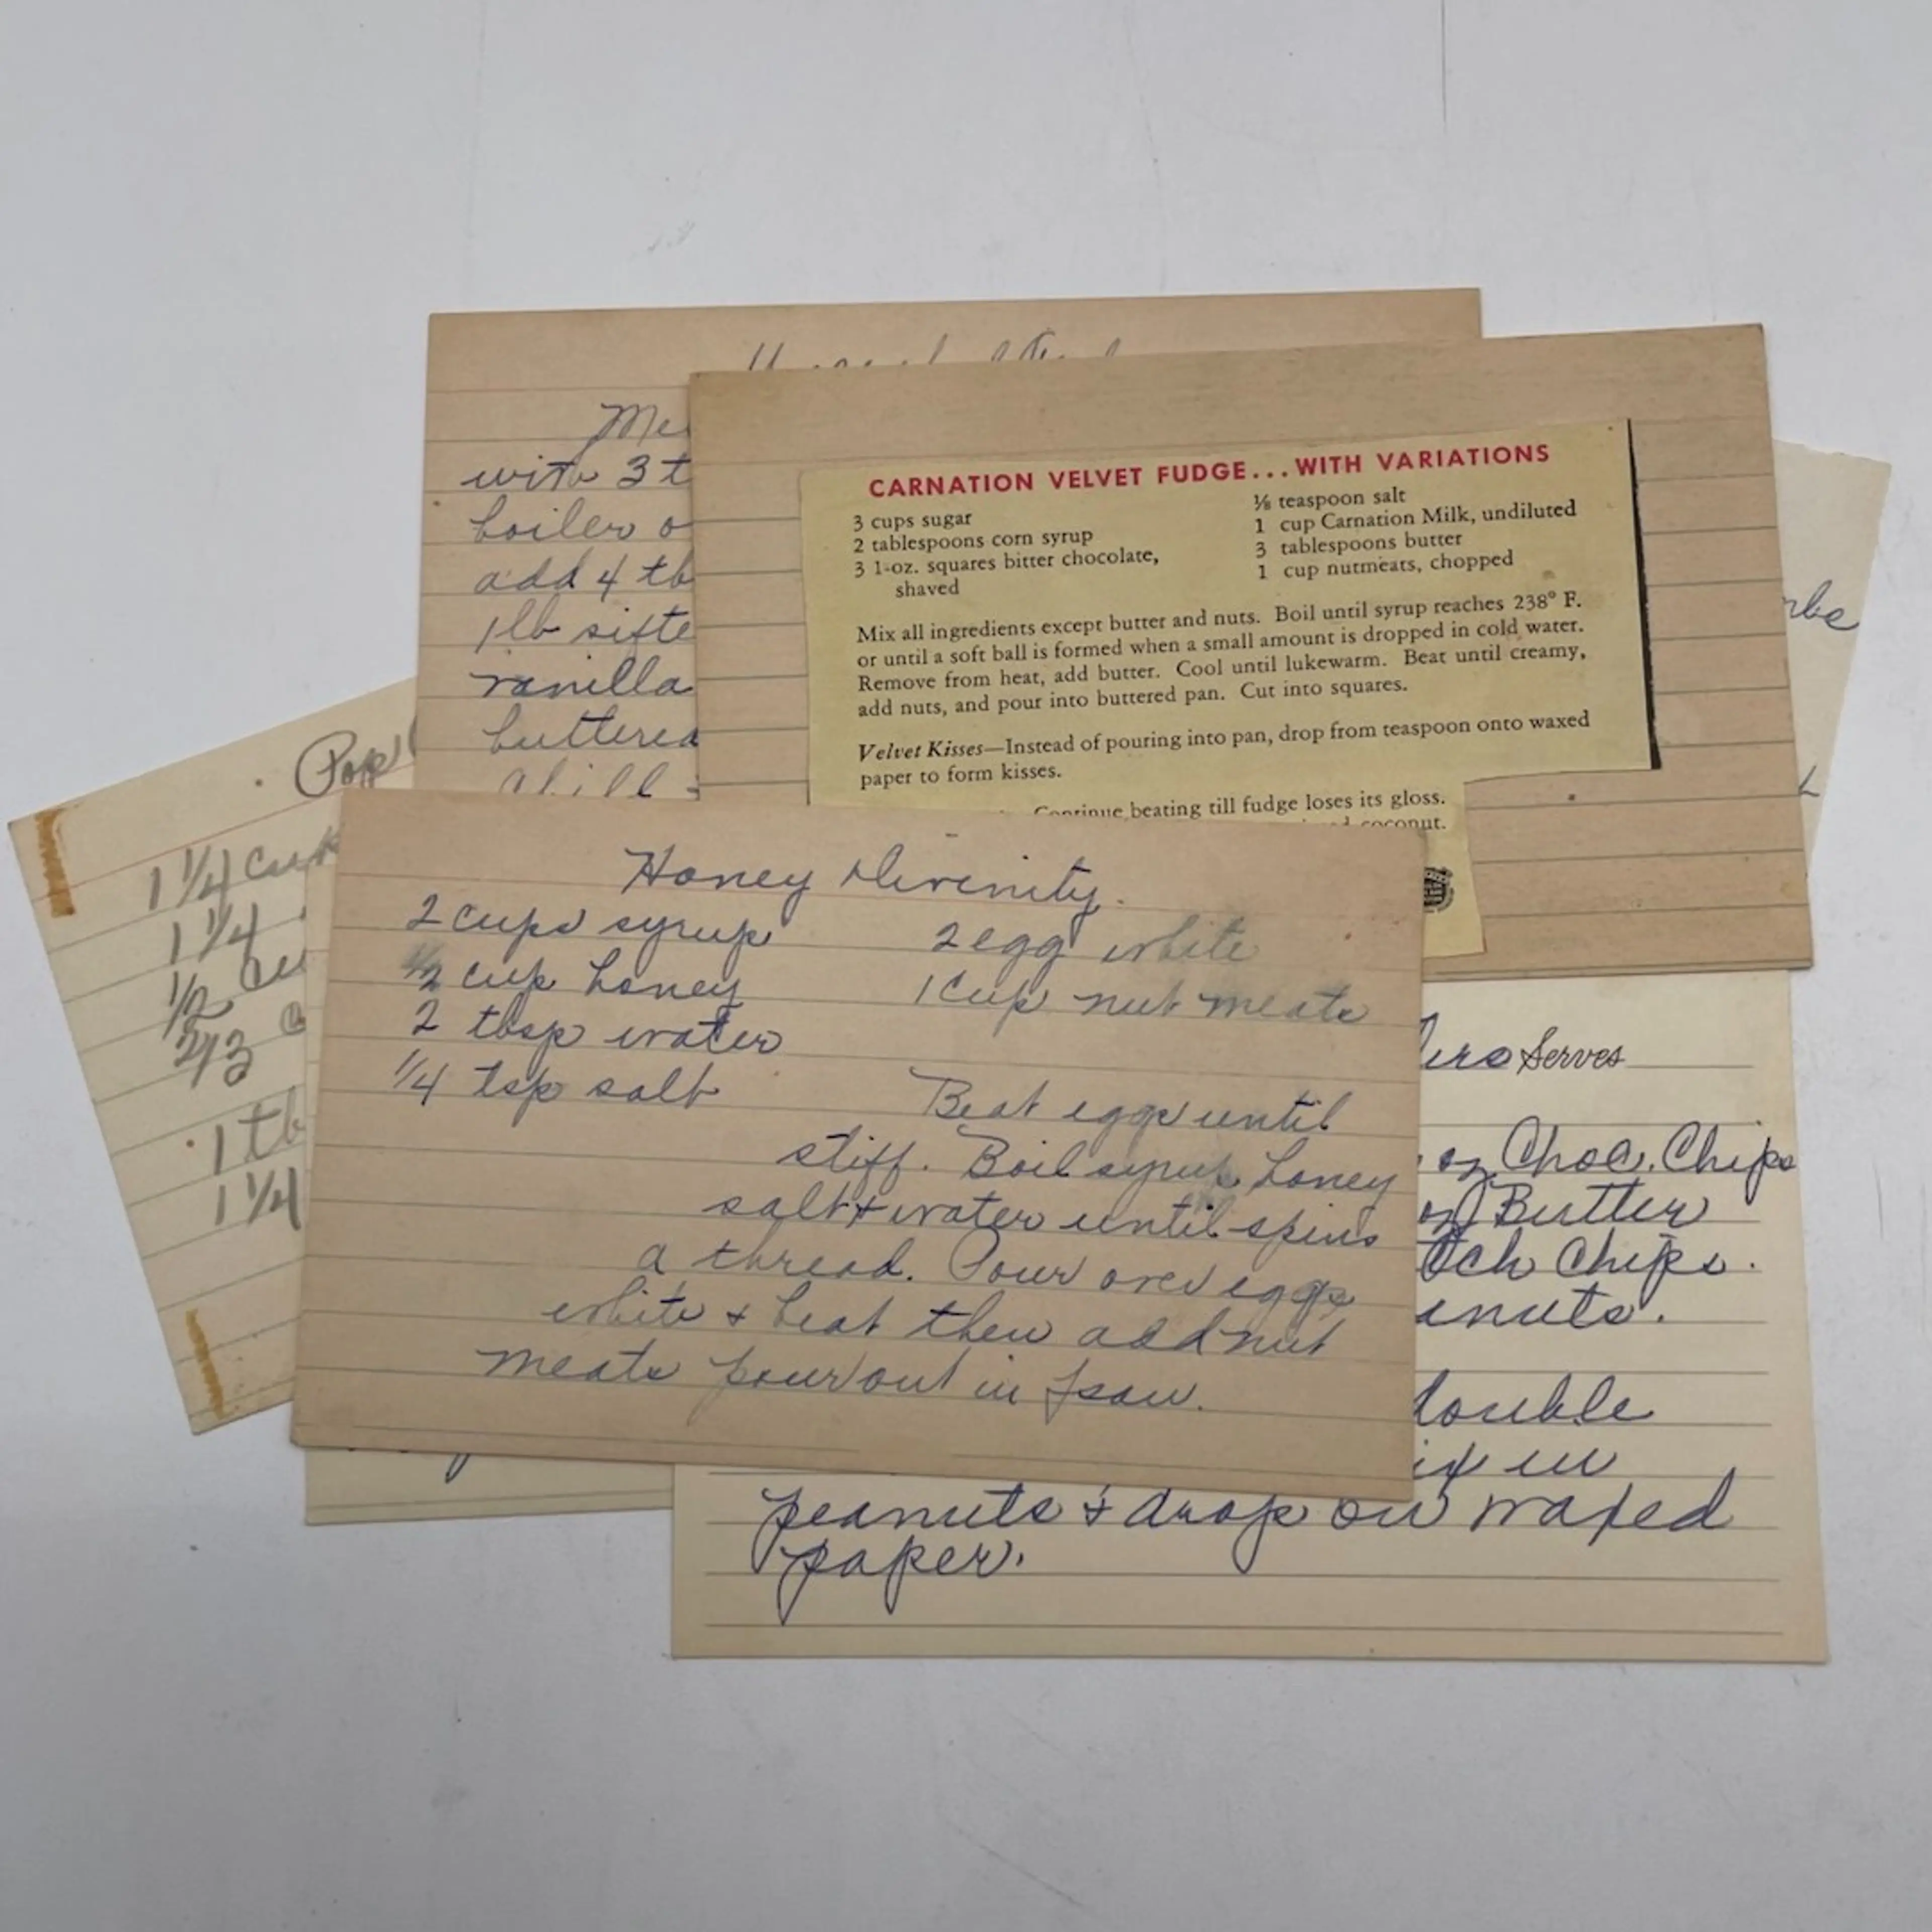 Me
with 3 t
boiler o
add 4 tb
1lb sifte
vanilla
buttered
chill
CARNATION VELVET FUDGE...WITH VARIATIONS
3 cups sugar
2 tablespoons corn syrup
3 1-oz. squares bitter chocolate,
shaved
⅛ teaspoon salt
1 cup Carnation Milk, undiluted
3 tablespoons butter
1 cup nutmeats, chopped
Mix all ingredients except butter and nuts. Boil until syrup reaches 238° F.
or until a soft ball is formed when a small amount is dropped in cold water.
Remove from heat, add butter. Cool until lukewarm. Beat until creamy,
add nuts, and pour into buttered pan. Cut into squares.
Velvet Kisses—Instead of pouring into pan, drop from teaspoon onto waxed
paper to form kisses.
Continue beating till fudge loses its gloss.
coconut.
Pop
1 1/4 cup
1 1/4
1/2 cu
2/3 c
1 tb
1 1/4
Honey Divinity.
2 cups syrup
1/2 cup honey
2 tbsp water
1/4 tsp salt
2 egg white
1 cup nut meats
Beat eggs until
stiff. Boil syrup, honey
salt + water until spins
a thread. Pour over eggs
white + beat then add nut
meats pour out in pan.
Serves
oz Choc. Chips
oz Butter
tch Chips.
anuts.
double
ix in
peanuts + drop on waxed
paper.